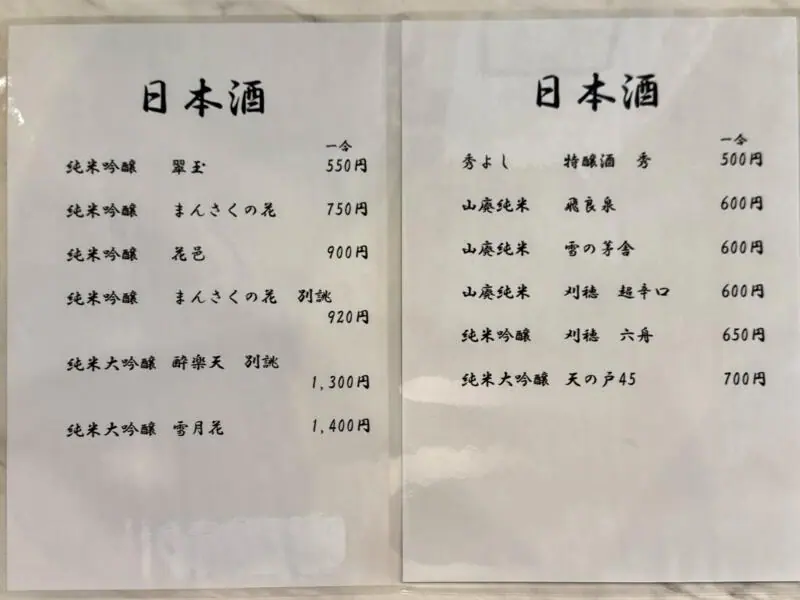 日本酒
一合
純米吟醸 翠玉 550円
純米吟醸 まんさくの花 750円
純米吟醸 花邑 900円
純米吟醸 まんさくの花 別誂
920円
純米大吟醸 酔楽天 別誂
1,300円
純米大吟醸 雪月花 1,400円
日本酒
一合
秀よし 特醸酒 秀 500円
山廃純米 飛良泉 600円
山廃純米 雪の茅舎 600円
山廃純米 刈穂 超辛口 600円
純米吟醸 刈穂 六舟 650円
純米大吟醸 天の戸45 700円